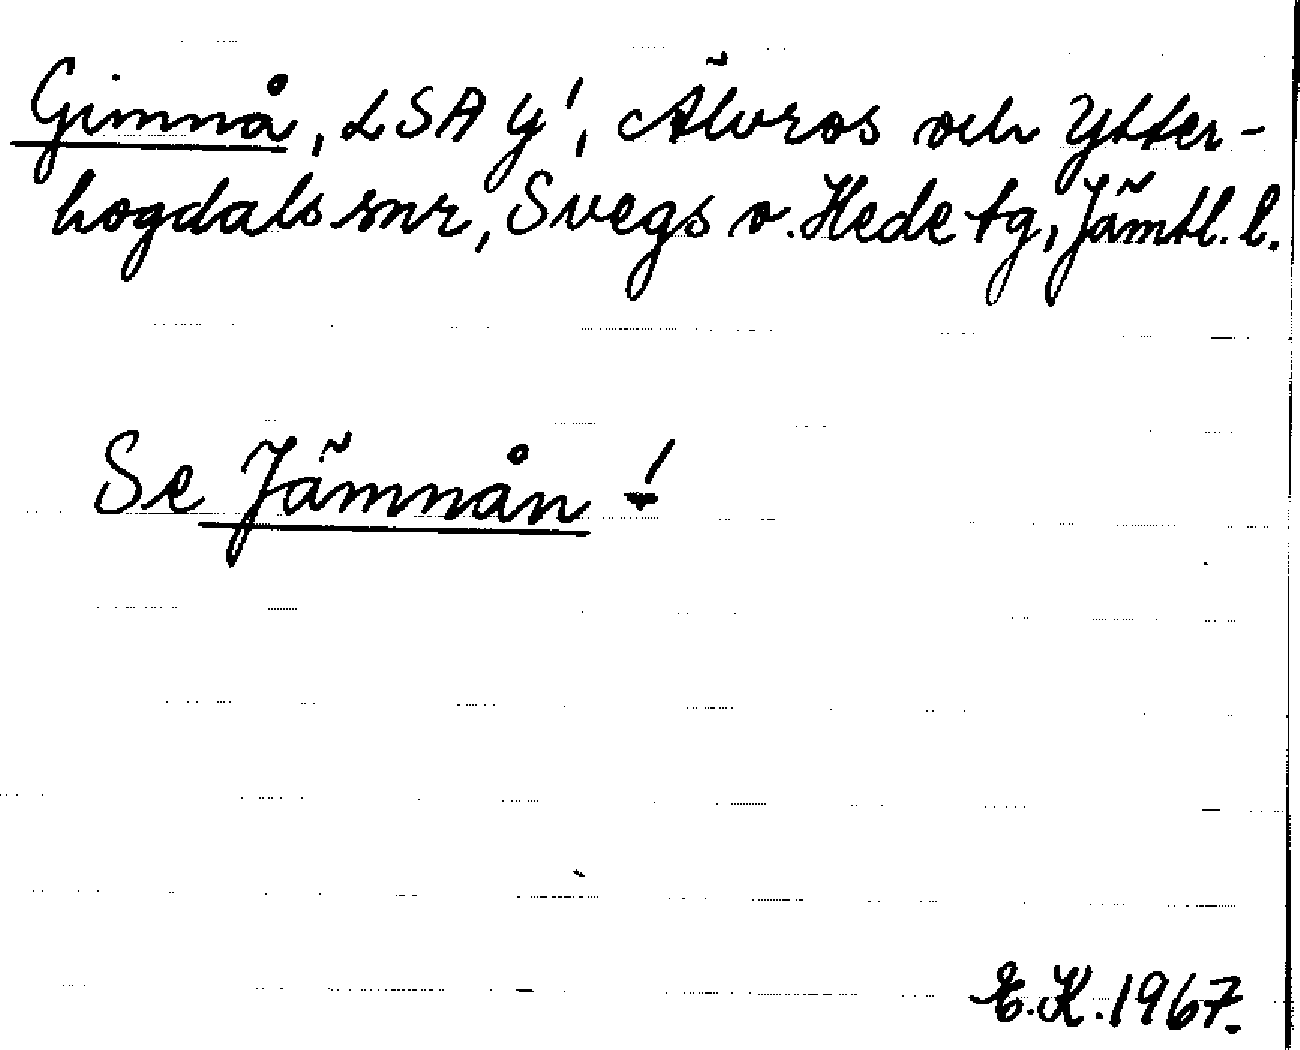 Gimnå, LSA Y!, Älvros och Ytter-
hogdals snr, Svegs o. Hede tg, Jämtl. l.
Se Jämnån !
E.K. 1967.